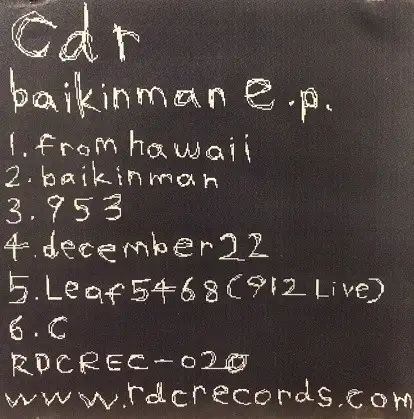 Cdr
baikinman e.p.
1. from hawaii
2. baikinman
3. 953
4. december 22
5. Leaf 5468 (912 Live)
6. C
RDCREC-020
www.rdcrecords.com